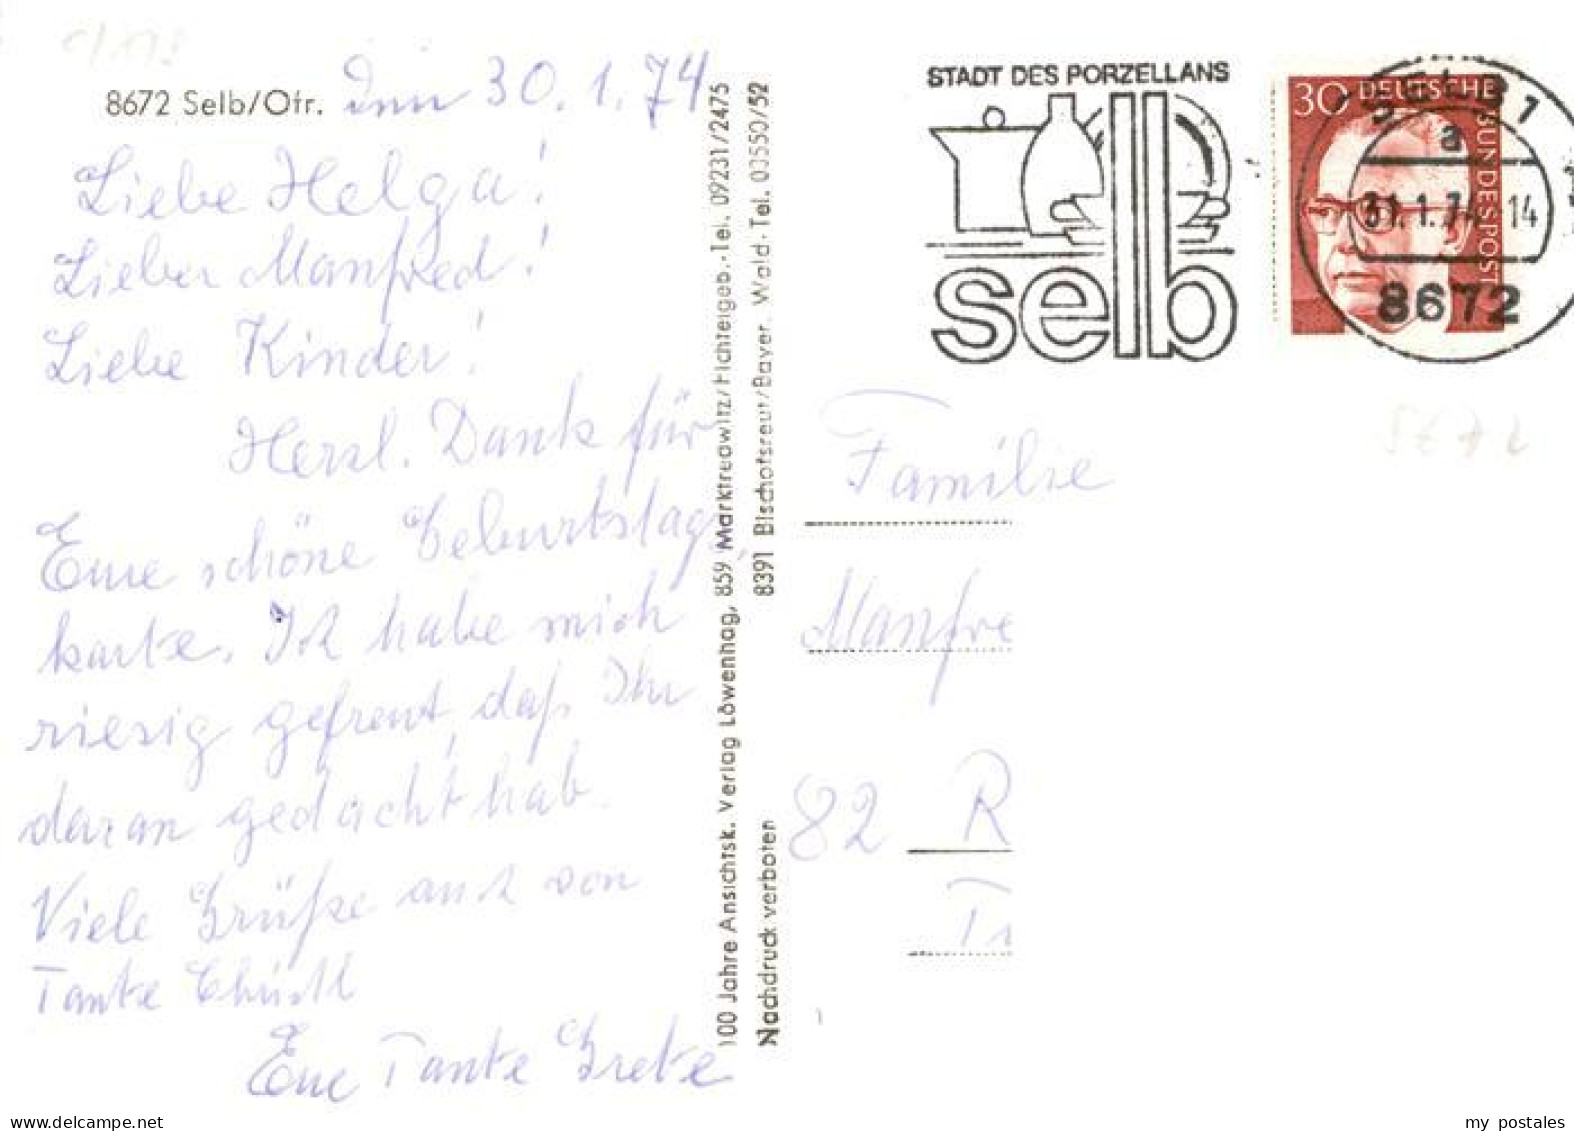 8672 Selb/Ofr. den 30.1.74
Liebe Helga!
Lieber Manfred!
Liebe Kinder!
Herzl. Dank für
Eure schöne Geburtstags
karte. Ich habe mich
riesig gefreut, daß Ihr
daran gedacht hab.
Viele Grüße auch von
Tante Christl
Eure Tante Grete
100 Jahre Ansichtsk. Verlag Löwenhag, 859 Marktredwitz/Fichtelgeb.-Tel. 09231/2475
8391 Bischofsreut/Bayer. Wald-Tel. 08550/52
Nachdruck verboten
STADT DES PORZELLANS
selb
30 DEUTSCHE BUNDESPOST
SELB 1
a
31.1.74 14
8672
Familie
Manfre
82 R
my postales
delcampe.net